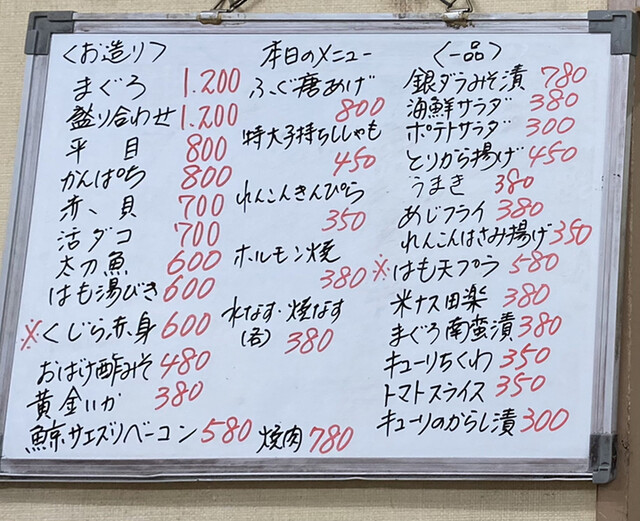 〈お造り〉
まぐろ 1.200
盛り合わせ 1.200
平目 800
かんぱち 800
赤貝 700
活ダコ 700
太刀魚 600
はも湯びき 600
※くじら赤身 600
おばけ酢みそ 480
黄金いか 380
鯨サエズリベーコン 580
本日のメニュー
ふぐ唐あげ
800
特大子持ちししゃも
450
れんこんきんぴら
350
ホルモン焼
380
水なす・焼なす
(各) 380
焼肉 780
〈一品〉
銀ダラみそ漬 780
海鮮サラダ 380
ポテトサラダ 300
とりから揚げ 450
うまき 380
あじフライ 380
れんこんはさみ揚げ 350
※はも天プラ 580
米ナス田楽 380
まぐろ南蛮漬 380
キューリちくわ 350
トマトスライス 350
キューリのからし漬 300